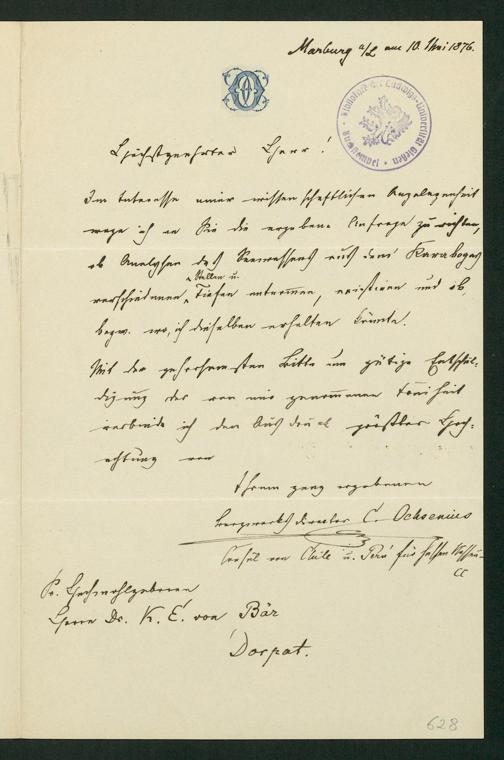 Marburg a/L am 10. Mai 1876.
Bibliothek der Ludwigs-Universität Giessen
Höchstgeehrter Herr!
Im Interesse einer wissenschaftlichen Angelegenheit
wage ich an Sie die ergebene Anfrage zu richten,
ob Analysen des Seewassers aus dem Karabogas
Stellen u.
verschiedenen Tiefen entnommen, existiren und ob,
bezw. wo, ich dieselben erhalten könnte.
Mit der gehorsamsten Bitte um gütige Entschul-
digung der von mir genommenen Freiheit
verbinde ich den Ausdruck größter Hoch-
achtung von
Ihrem ganz ergebenen
Bergwerksdirector C. Ochsenius
Consul von Chile u. Perú für Hessen Nassau
Sr. Hochwohlgeboren
Herrn Dr. K. E. von Bär
Dorpat.
628